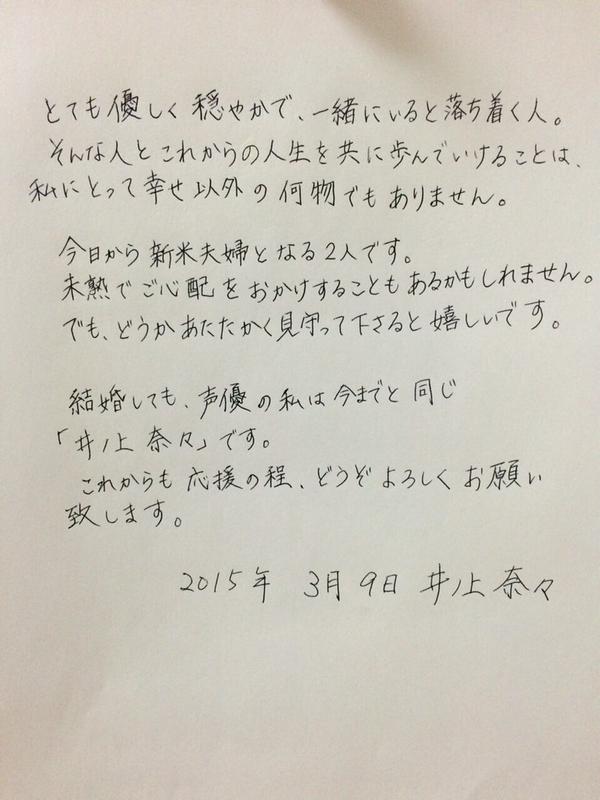 とても優しく穏やかで、一緒にいると落ち着く人。
そんな人とこれからの人生を共に歩んでいけることは、
私にとって幸せ以外の何物でもありません。
今日から新米夫婦となる2人です。
未熟でご心配をおかけすることもあるかもしれません。
でも、どうかあたたかく見守って下さると嬉しいです。
結婚しても、声優の私は今までと同じ
「井ノ上奈々」です。
これからも応援の程、どうぞよろしくお願い
致します。
2015年 3月9日 井ノ上奈々